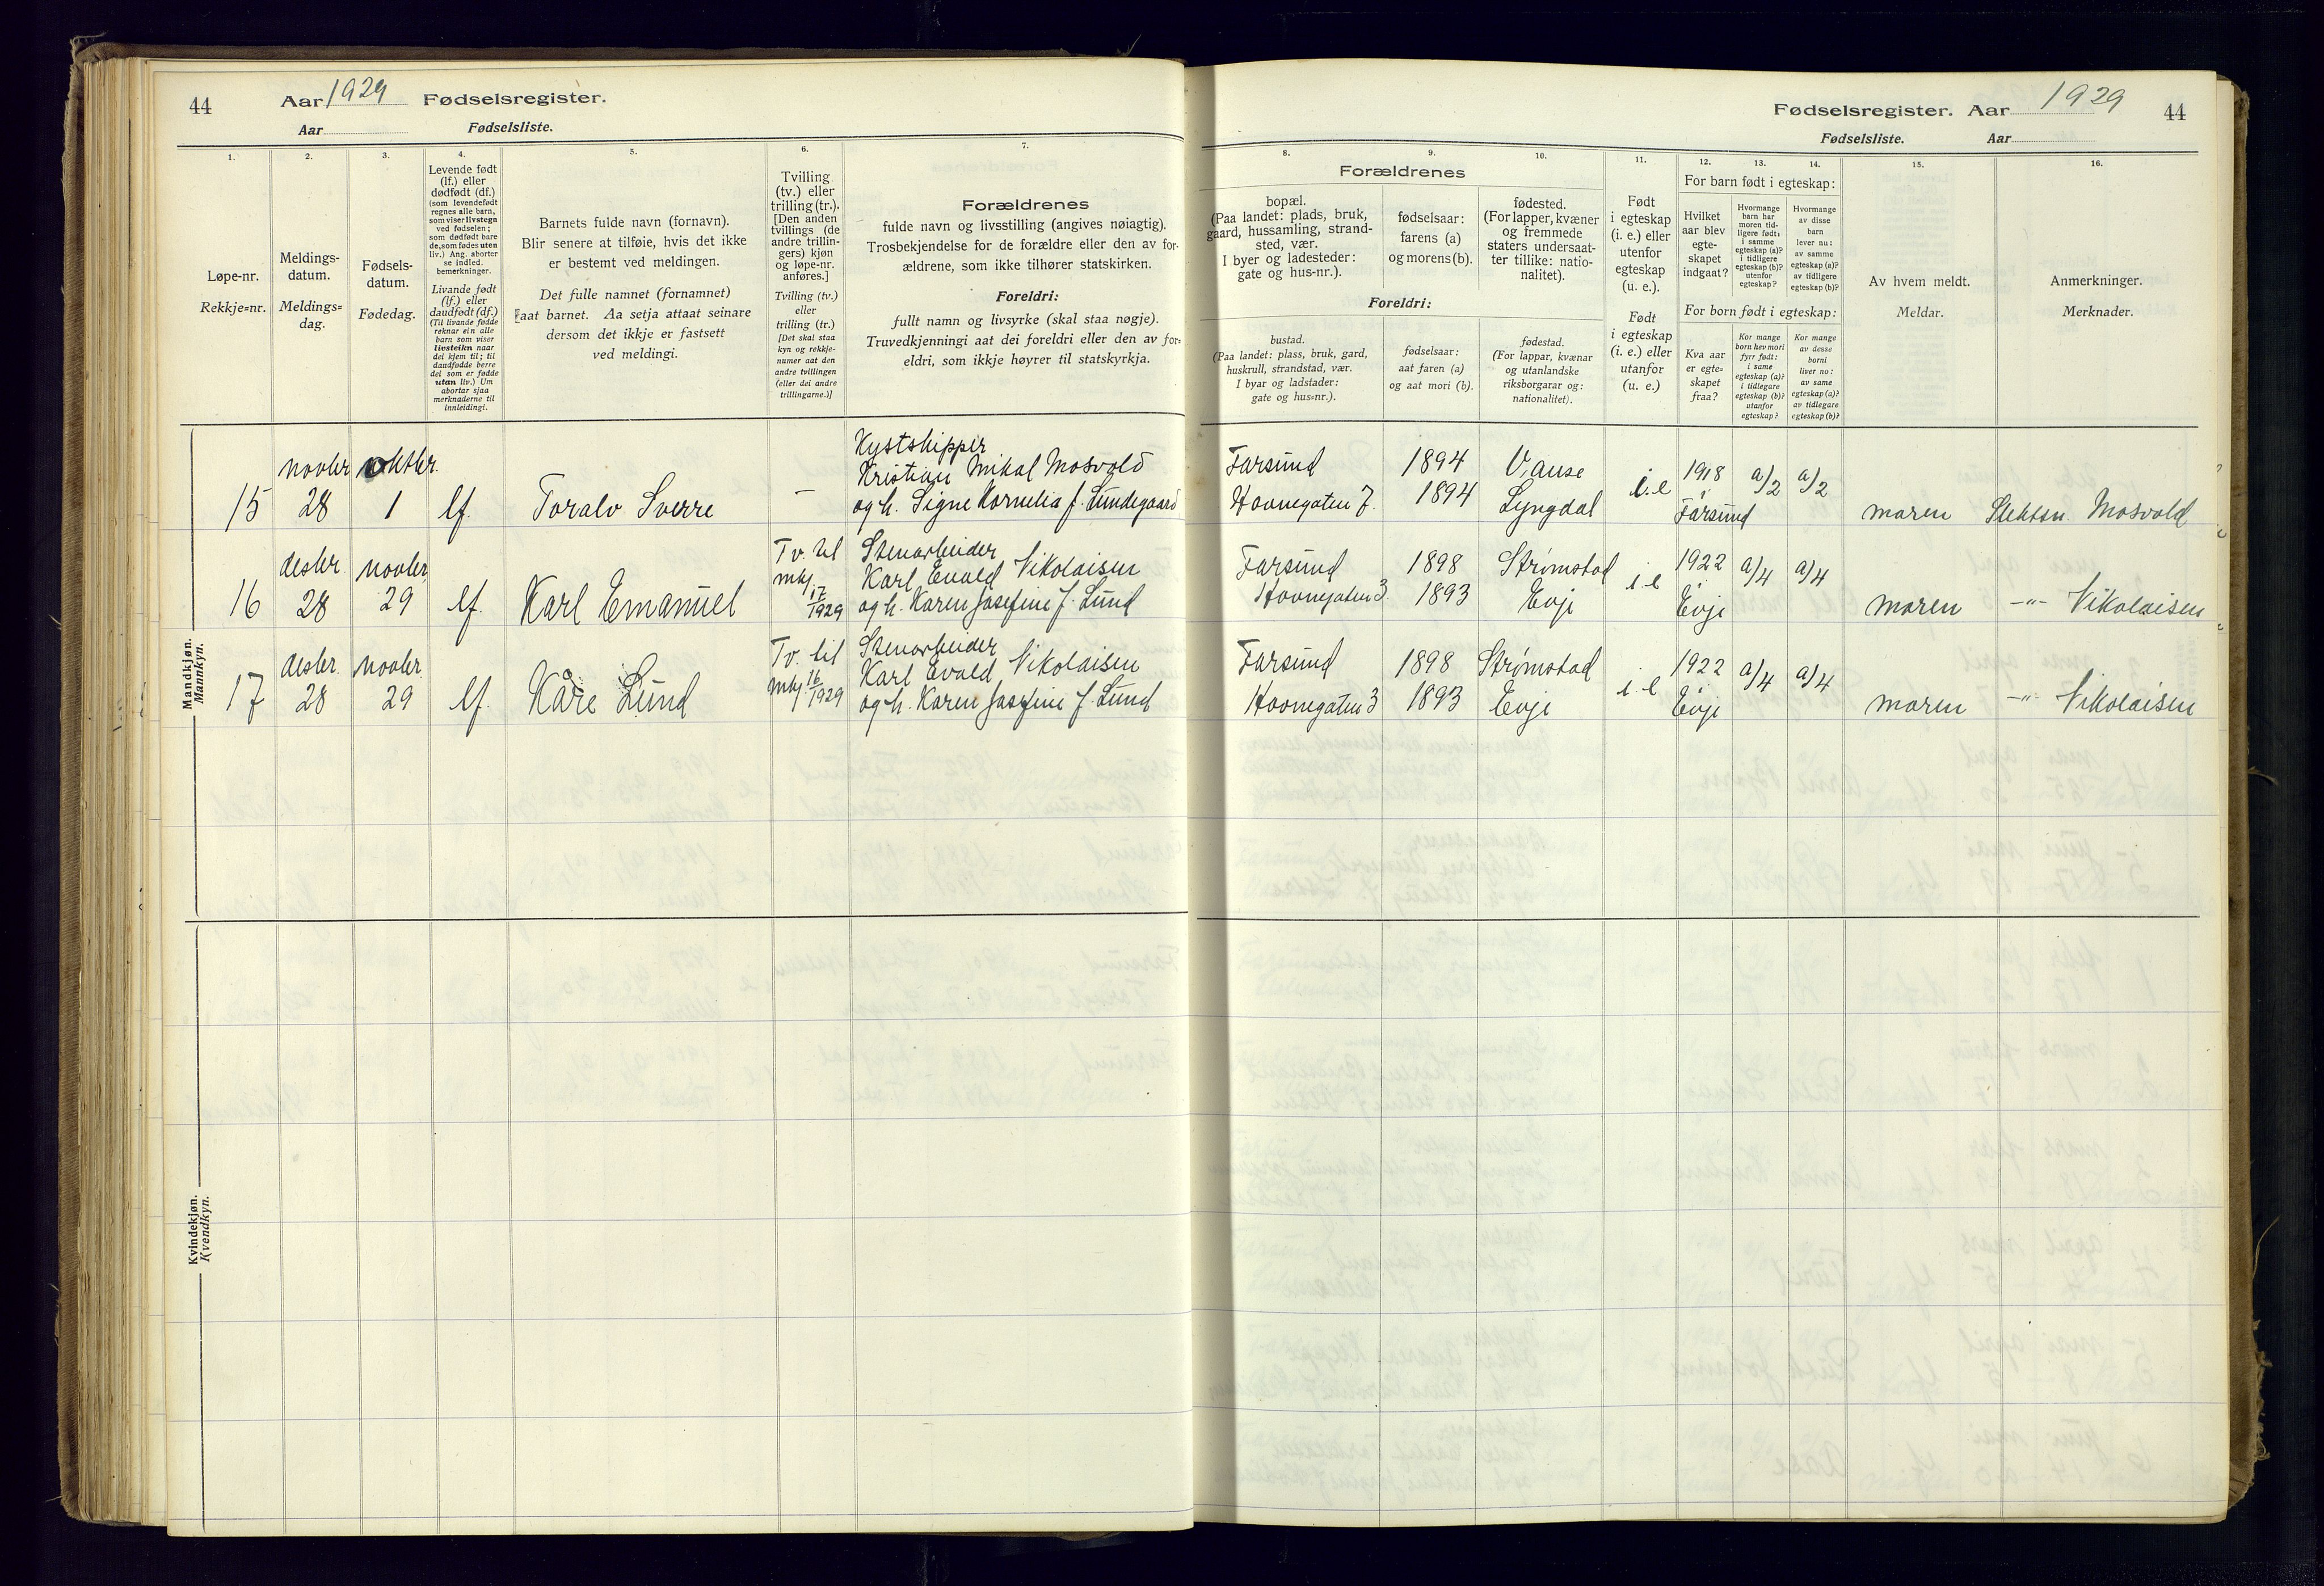 44 Aar 1929 Fødselsregister.
Aar Fødselsliste.
1. 2. 3. 4. 5. 6. 7.
Løpe-nr.
Rekkje=nr.
Meldings-
datum.
Meldings=
dag.
Fødsels-
datum.
Fødedag.
Levende født
(lf.) eller
dødfødt (df.)
(som levendefødt
regnes alle barn,
som viser livstegn
ved fødselen;
som dødfødt bare
de, som fødes uten
liv.) Ang. aborter
se indled.
bemerkninger.
Livande født
(lf.) eller
daudfødt (df.)
(Til livande fødde
reknar ein alle
barn som viser
livsteikn naar
dei kjem til; til
daudfødde berre
dei som er fødde
utan liv.) Um
abortar sjaa
merknaderne til
innleidingi.
Barnets fulde navn (fornavn).
Blir senere at tilføie, hvis det ikke
er bestemt ved meldingen.
Det fulle namnet (fornamnet)
aat barnet. Aa setja attaat seinare
dersom det ikkje er fastsett
ved meldingi.
Tvilling
(tv.) eller
trilling (tr.).
[Den anden
tvillings (de
andre trillin-
gers) kjøn
og løpe-nr.
anføres.]
Tvilling (tv.)
eller
trilling (tr.)
[Det skal staa
kyn og rekkje-
numer aat den
andre tvillingen
(eller dei andre
trillingarne.)]
Forældrenes
fulde navn og livsstilling (angives nøiagtig).
Trosbekjendelse for de forældre eller den av for-
ældrene, som ikke tilhører statskirken.
Foreldri:
fullt namn og livsyrke (skal staa nøgje).
Truvedkjenningi aat dei foreldri eller den av for-
eldri, som ikkje høyrer til statskyrkja.
Mandkjøn.
Mannkyn.
novbr. oktbr. Kystskipper
Kristian Mikal Mosvold
15 28 1 lf. Toralv Sverre — og h. Signe Kornelia f. Lundegaard
desbr. novbr. Tv. til Stenarbeider
mkj. Karl Evald Nikolaisen
16 28 29 lf. Karl Emanuel 17/1929 og h. Karen Josefine f. Lund
desbr. novbr. Tv. til Stenarbeider
mkj. 16/1929 Karl Evald Nikolaisen
17 28 29 lf. Kåre Lund og h. Karen Josefine f. Lund
Kvindekjøn.
Kvendkyn.
Fødselsregister. Aar 1929 44
Fødselsliste. Aar
8. 9. 10. 11. 12. 13. 14. 15. 16.
Forældrenes
bopæl.
(Paa landet: plads, bruk,
gaard, hussamling, strand-
sted, vær.
I byer og ladesteder:
gate og hus-nr.).
fødselsaar:
farens (a)
og morens (b).
fødested.
(For lapper, kvæner
og fremmede
staters undersaat-
ter tillike: natio-
nalitet).
Foreldri:
bustad.
(Paa landet: plass, bruk, gard,
huskrull, strandstad, vær.
I byar og ladstader:
gate og hus=nr.).
fødselsaar:
aat faren (a)
og aat mori (b).
fødestad.
(For lappar, kvænar
og utanlandske
riksborgarar og:
nationalitet).
Født
i egteskap
(i. e.) eller
utenfor
egteskap
(u. e.).
Født
i egteskap
(i. e.) eller
utanfor
(u. e.)
For barn født i egteskap:
Hvilket
aar blev
egte-
skapet
indgaat?
Hvormange
barn har
moren tid-
ligere født:
i samme
egteskap (a)?
i tidligere
egteskap (b)?
utenfor
egteskap?
Hvormange
av disse
barn
lever nu:
av samme
egteskap (a)?
av tidligere
egteskap (b)?
For born født i egteskap:
Kva aar
er egte=
skapet
fraa?
Kor mange
born hev mori
fyrr født:
i same
egteskap (a)?
i tidlegare
egteskap (b)?
utanfor
egteskap?
Kor mange
av desse
borni
liver no:
av same
egteskap (a)?
av tidlegare
egteskap (b)?
Av hvem meldt.
Meldar.
Anmerkninger.
Merknader.
Farsund 1894 Vanse i.e 1918 a/2 a/2
Havnegaten 7. 1894 Lyngdal Farsund moren Slektsn. Mosvold
Farsund 1898 Strømstad i.e 1922 a/4 a/4
Havnegaten 3. 1893 Evje Evje moren -"- Nikolaisen
Farsund 1898 Strømstad i.e 1922 a/4 a/4
Havnegaten 3 1893 Evje Evje moren -"- Nikolaisen